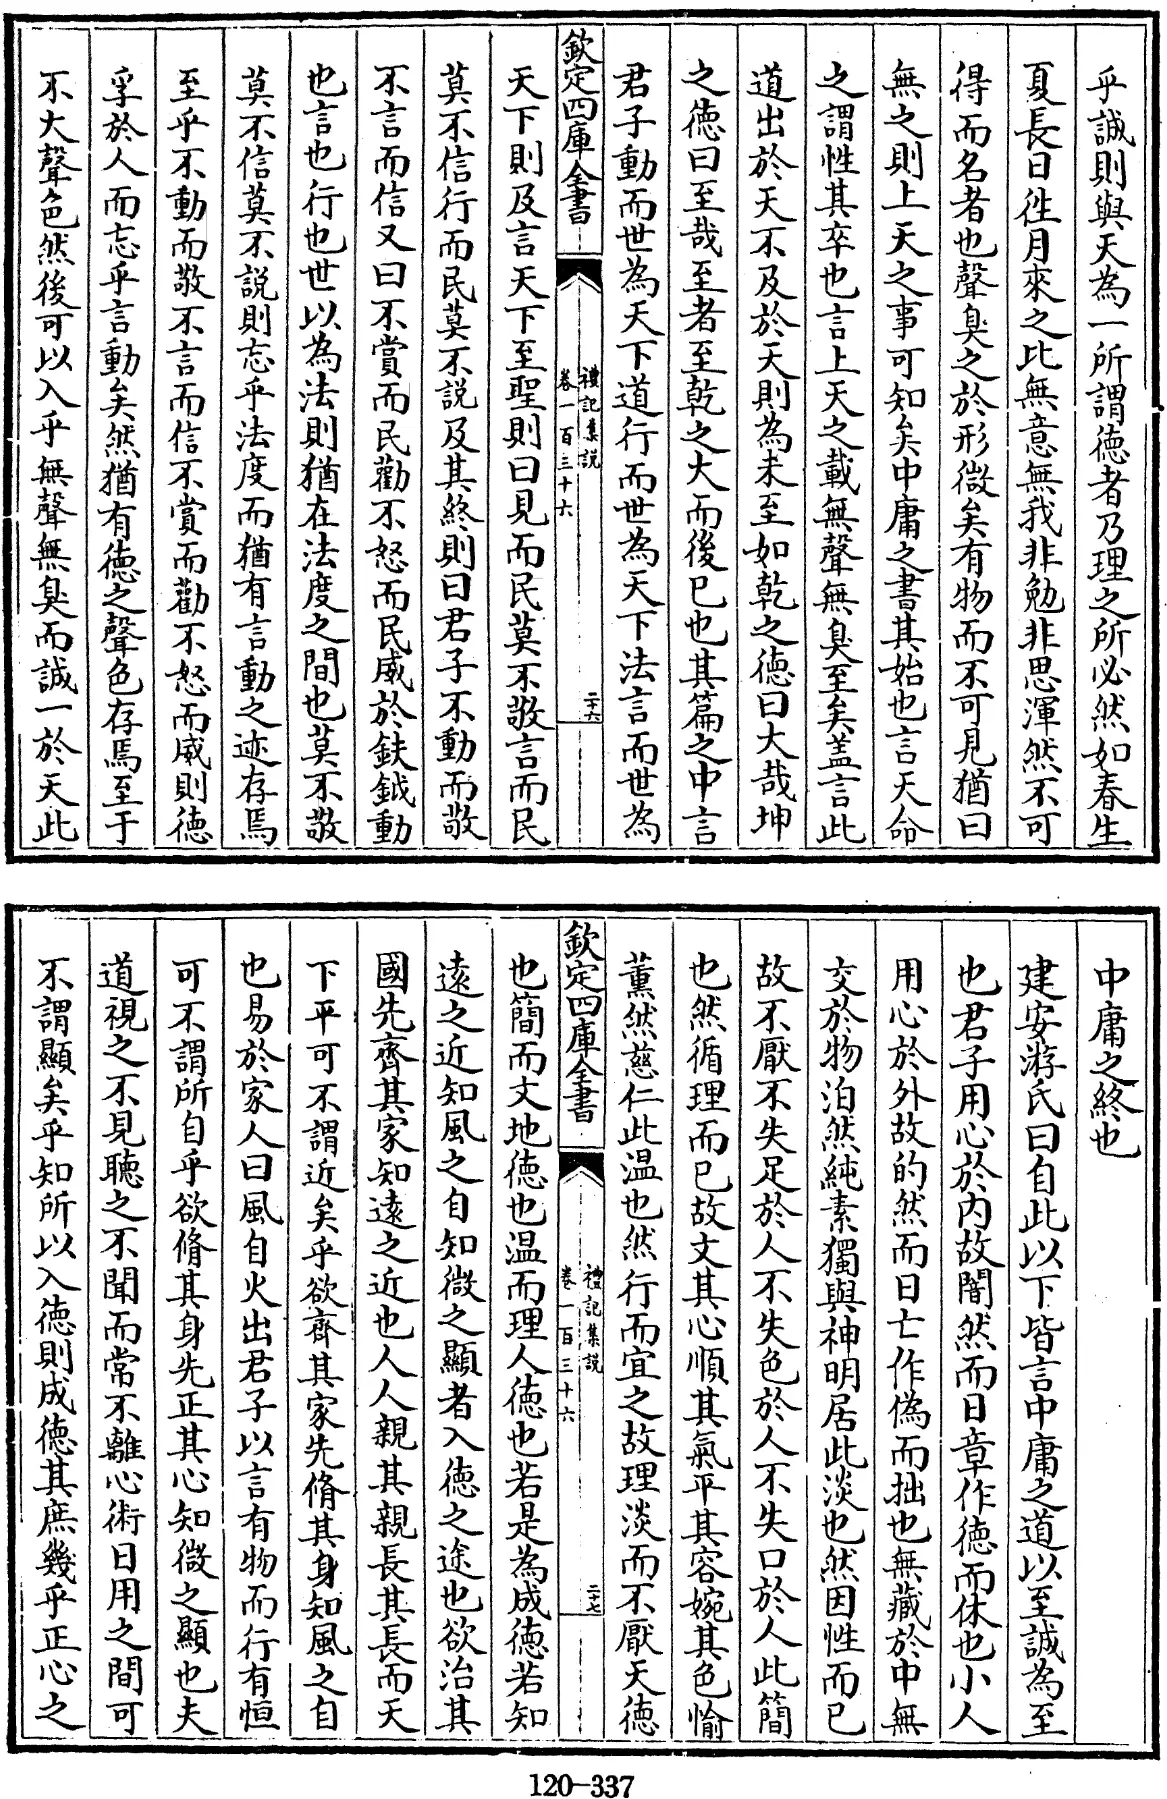 乎誠則與天為一所謂徳者乃理之所必然如春生
夏長日徃月來之比無意無我非勉非思渾然不可
得而名者也聲臭之於形微矣有物而不可見猶曰
無之則上天之事可知矣中庸之書其始也言天命
之謂性其卒也言上天之載無聲無臭至矣盖言此
道出於天不及於天則為未至如乾之徳曰大哉坤
之徳曰至哉至者至乾之大而後已也其篇之中言
君子動而世為天下道行而世為天下法言而世為
欽定四庫全書
禮記集説
卷一百三十六
二十六
天下則及言天下至聖則曰見而民莫不敬言而民
莫不信行而民莫不説及其終則曰君子不動而敬
不言而信又曰不賞而民勸不怒而民威於鈇鉞動
也言也行也世以為法則猶在法度之間也莫不敬
莫不信莫不説則忘乎法度而猶有言動之迹存焉
至乎不動而敬不言而信不賞而勸不怒而威則徳
孚於人而忘乎言動矣然猶有徳之聲色存焉至于
不大聲色然後可以入乎無聲無臭而誠一於天此
中庸之終也
建安游氏曰自此以下皆言中庸之道以至誠為至
也君子用心於内故闇然而日章作徳而休也小人
用心於外故的然而日亡作偽而拙也無藏於中無
交於物泊然純素獨與神明居此淡也然因性而已
故不厭不失足於人不失色於人不失口於人此簡
也然循理而已故文其心順其氣平其容婉其色愉
薫然慈仁此温也然行而宜之故理淡而不厭天徳
欽定四庫全書
禮記集説
卷一百三十六
二十七
也簡而文地徳也温而理人徳也若是為成徳若知
逺之近知風之自知微之顯者入徳之途也欲治其
國先齊其家知逺之近也人人親其親長其長而天
下平可不謂近矣乎欲齊其家先脩其身知風之自
也易於家人曰風自火出君子以言有物而行有恒
可不謂所自乎欲脩其身先正其心知微之顯也夫
道視之不見聽之不聞而常不離心術日用之間可
不謂顯矣乎知所以入徳則成徳其庶幾乎正心之
120-337